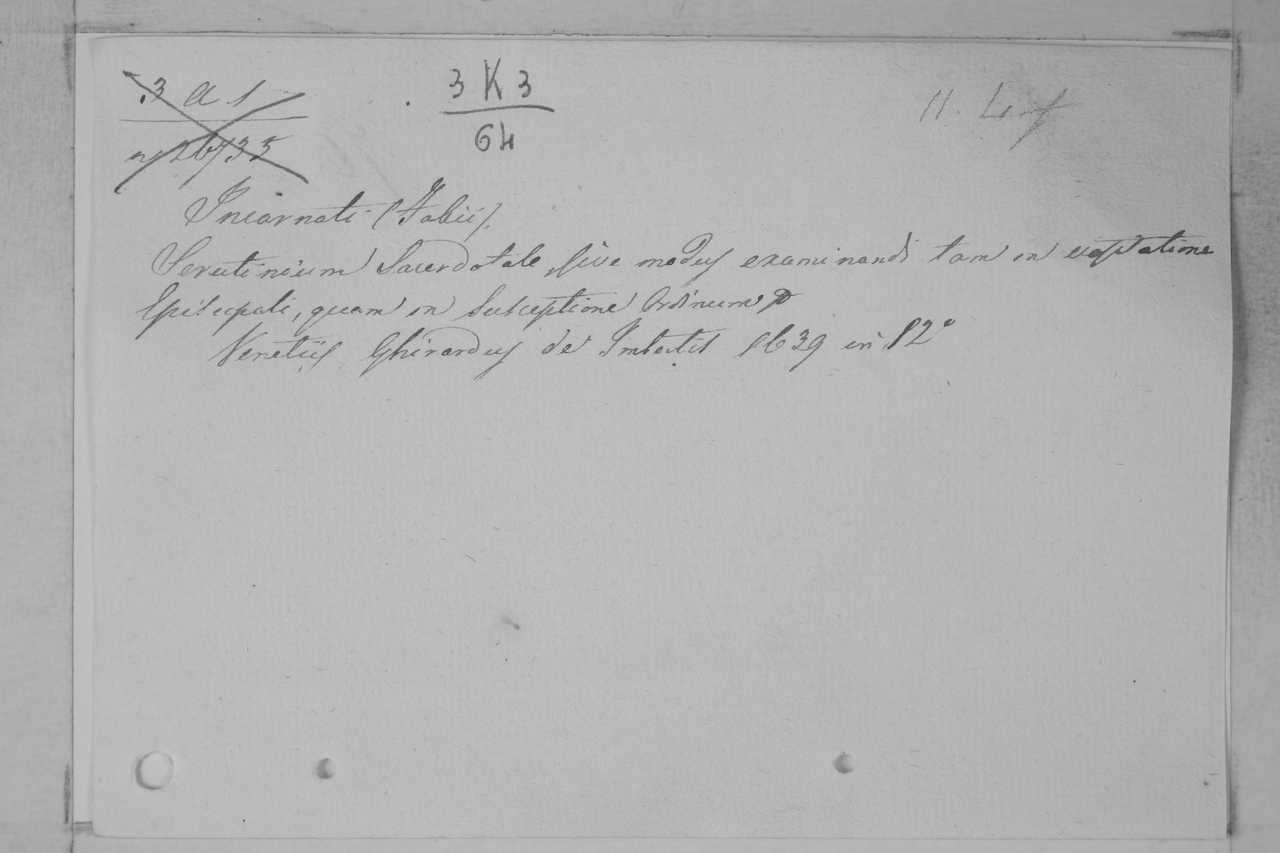 3 a 1
3 K 3
64
Incarnati (Fabii).
Scrutinium Sacerdotale, sive modus examinandi tam in visitatione
Episcopali, quam in Susceptione Ordinum
Venetiis Ghirardus de Imbertis 1639 in 12°